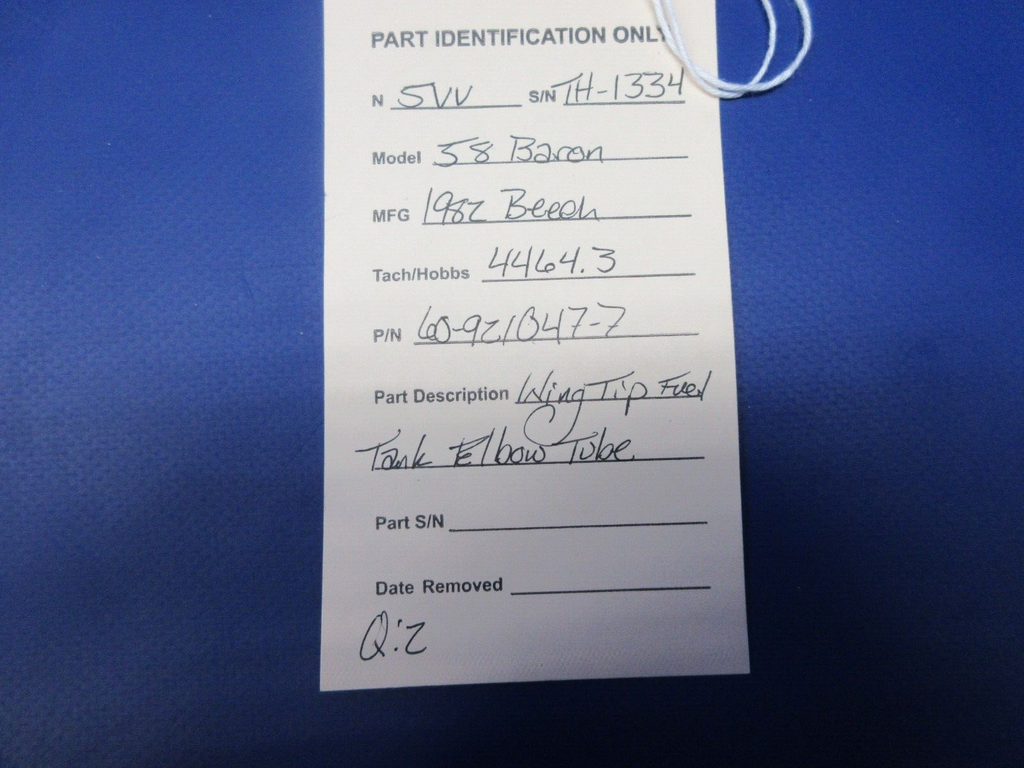 PART IDENTIFICATION ONLY
N 5VV S/N TH-1334
Model 58 Baron
MFG 1982 Beech
Tach/Hobbs 4464.3
P/N 60-921047-7
Part Description Wing Tip Fuel
Tank Elbow Tube
Part S/N
Date Removed
Q:2